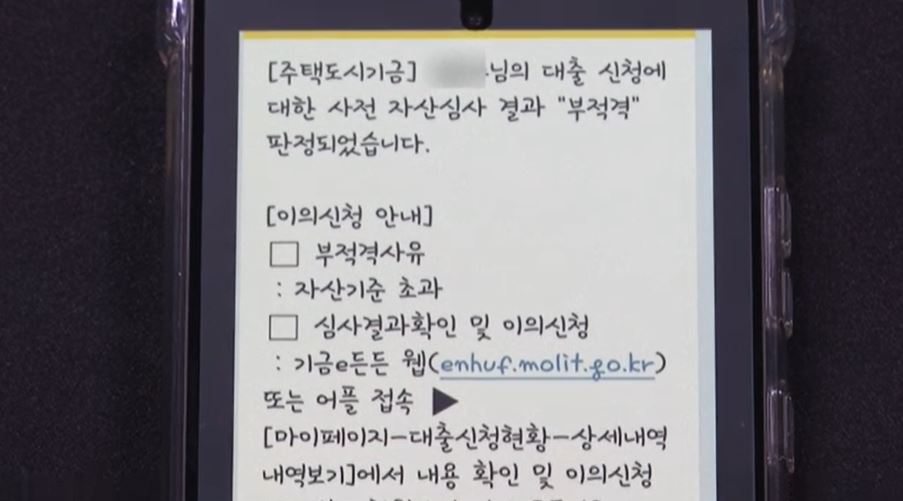 [주택도시기금] 님의 대출 신청에
대한 사전 자산심사 결과 "부적격"
판정되었습니다.
[이의신청 안내]
□ 부적격사유
: 자산기준 초과
□ 심사결과확인 및 이의신청
: 기금e든든 웹(enhuf.molit.go.kr)
또는 어플 접속 ▶
[마이페이지-대출신청현황-상세내역
내역보기]에서 내용 확인 및 이의신청